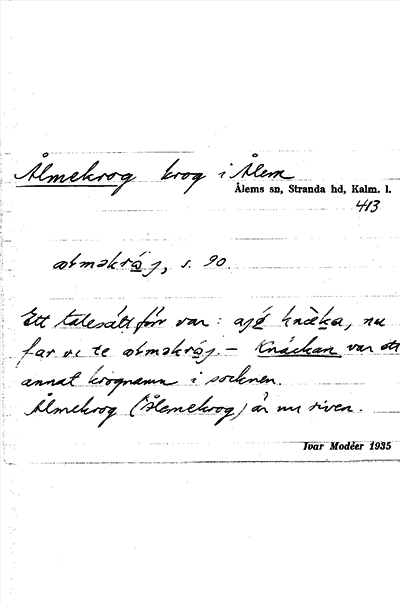 Ålmekrog krog i Ålem
Ålems sn, Stranda hd, Kalm. l.
413
s. 90.
Ett talesätt förr var: ajö knäka, nu
far vi te – Knäckan var ett
annat krognamn i socknen.
Ålmekrog (Ålemekrog) är nu riven.
Ivar Modéer 1935